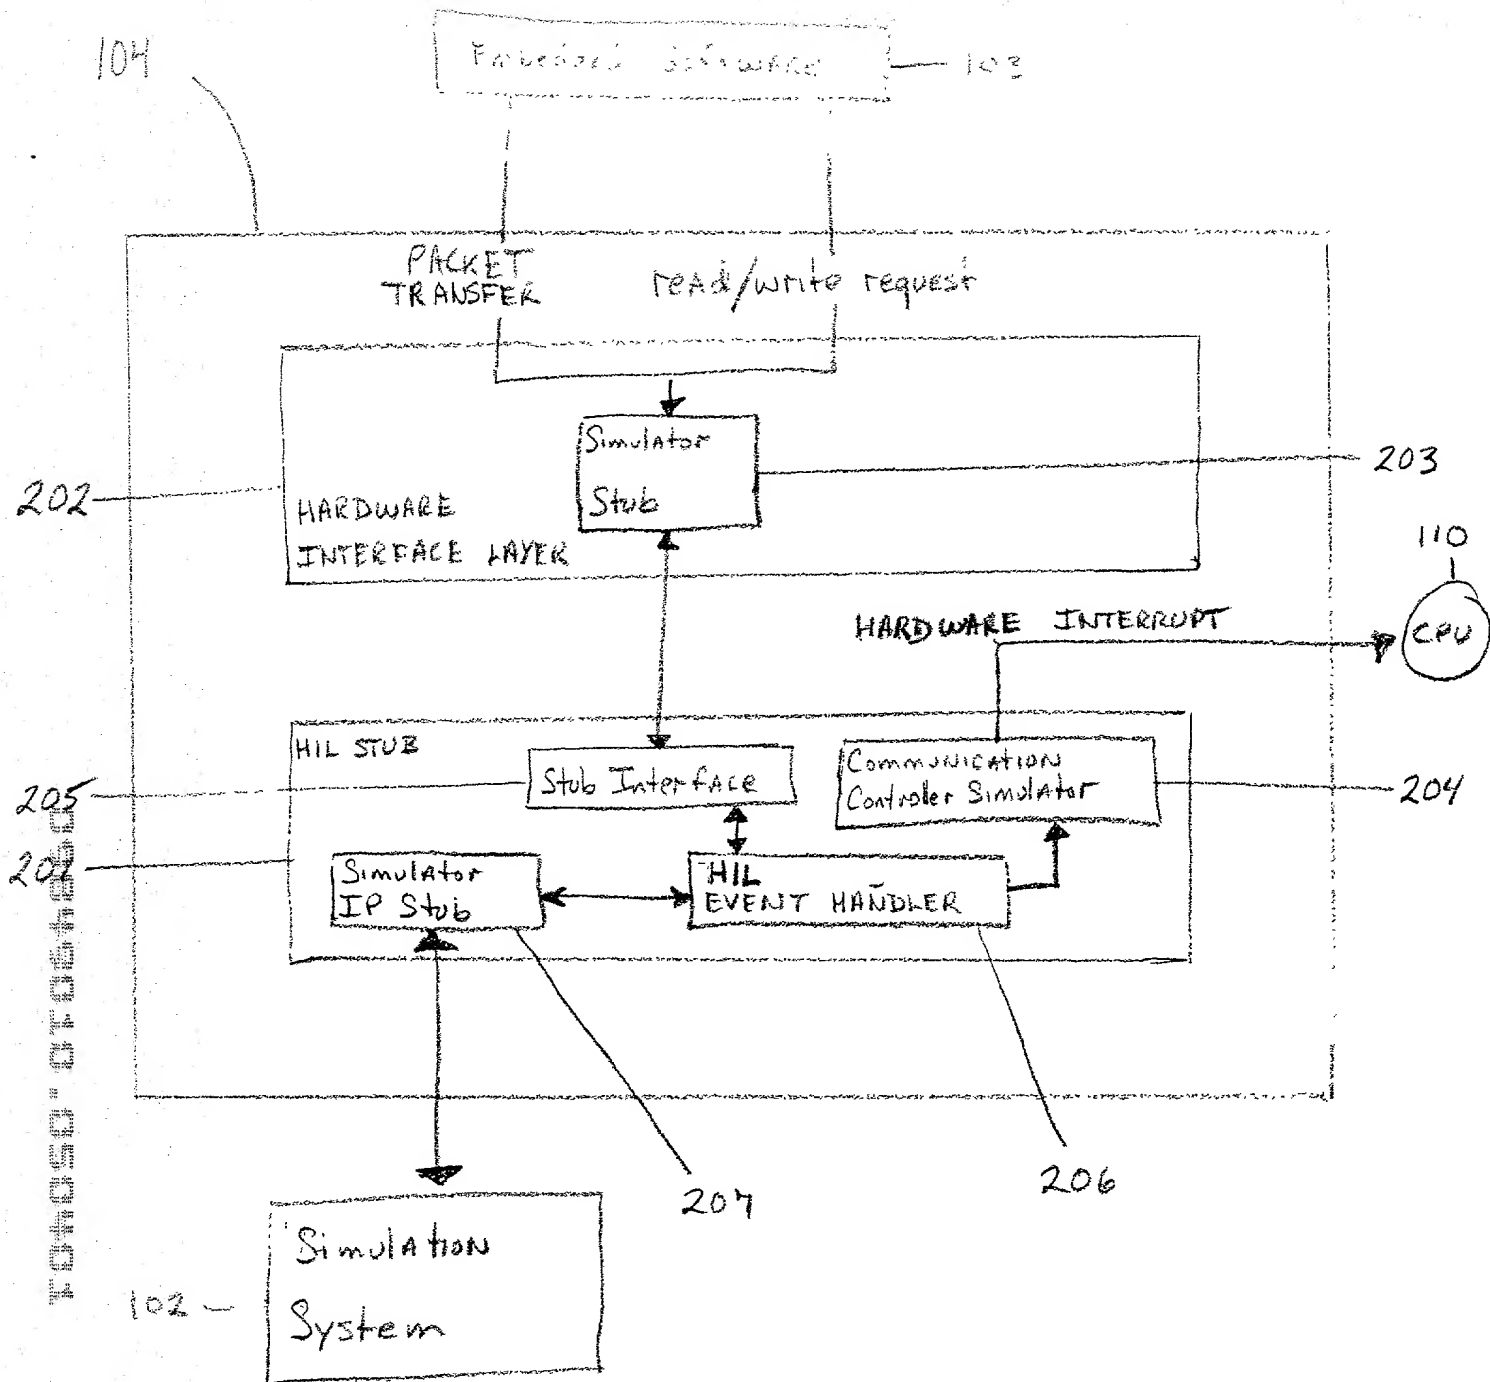 104
Embedded Software
103
PACKET
TRANSFER
read/write request
Simulator
Stub
203
202
HARDWARE
INTERFACE LAYER
110
HARDWARE INTERRUPT
CPU
HIL STUB
Stub Interface
Communication
Controler Simulator
205
204
201
Simulator
IP Stub
HIL
EVENT HANDLER
207
206
Simulation
System
102